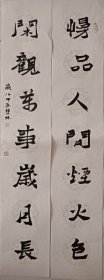 慢品人間煙火色
閑觀萬事歲月長